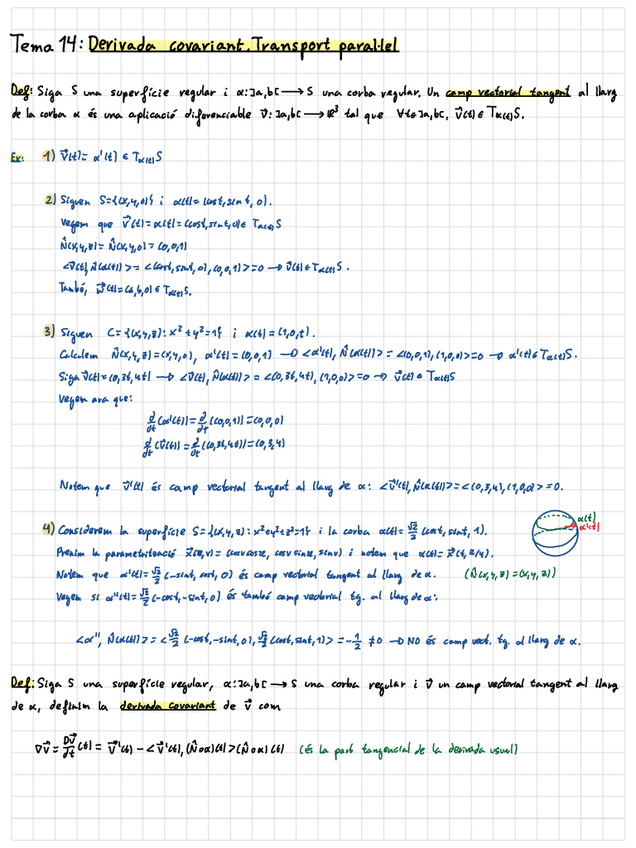 Tema 14: Derivada covariant. Transport paral·lel
Def: Siga S una superfície regular i α: ]a,b[ → S una corba regular. Un camp vectorial tangent al llarg
de la corba α és una aplicació diferenciable v⃗: ]a,b[ → ℝ³ tal que ∀t∈]a,b[, v⃗(t) ∈ T_{α(t)}S.
Ex: 1) v⃗(t) = α'(t) ∈ T_{α(t)}S
2) Siguen S={(x,y,0)} i α(t)=(cost, sint, 0).
Vegem que v⃗(t)=α(t)=(cost, sint, 0)∈ T_{α(t)}S
N̂(x,y,z)= N̂(x,y,0)=(0,0,1)
<v⃗(t), N̂(α(t))> = <(cost, sint, 0), (0,0,1)>=0 → v⃗(t)∈T_{α(t)}S.
També, w⃗(t)=(a,b,0)∈ T_{α(t)}S.
3) Siguen C={(x,y,z): x²+y²=1} i α(t)=(1,0,t).
Calculem N̂(x,y,z)=(x,y,0), α'(t)=(0,0,1) → <α'(t), N̂(α(t))> = <(0,0,1),(1,0,0)>=0 → α'(t)∈T_{α(t)}S.
Siga v⃗(t)=(0,3t,4t) → <v⃗(t), N̂(α(t))> = <(0,3t,4t),(1,0,0)>=0 → v⃗(t)∈T_{α(t)}S
Vegem ara que:
∂/∂t (α'(t)) = ∂/∂t ((0,0,1))=(0,0,0)
∂/∂t (v⃗(t)) = ∂/∂t ((0,3t,4t))=(0,3,4)
Notem que v⃗'(t) és camp vectorial tangent al llarg de α: <v⃗'(t), N̂(α(t))>=<(0,3,4),(1,0,0)>=0.
4) Considerem la superfície S={(x,y,z): x²+y²+z²=1} i la corba α(t)= √2/2 (cost, sint, 1).
α(t)
α'(t)
Prenim la parametrització x⃗(u,v)= (cosv cosu, cosv sinu, sinv) i notem que α(t)= x⃗(t, π/4).
Notem que α'(t)= √2/2 (-sint, cost, 0) és camp vectorial tangent al llarg de α. (N̂(x,y,z)=(x,y,z))
Vegem si α''(t)= √2/2 (-cost,-sint, 0) és també camp vectorial tg. al llarg de α:
<α'', N̂(α(t))> = <√2/2 (-cost,-sint, 0), √2/2 (cost, sint, 1)> = -1/2 ≠0 → NO és camp vect. tg. al llarg de α.
Def: Siga S una superfície regular, α: ]a,b[ → S una corba regular i v⃗ un camp vectorial tangent al llarg
de α, definim la derivada covariant de v⃗ com
∇v⃗ = Dv⃗/dt (t) = v⃗'(t) - <v⃗'(t), (N̂∘α)(t)>(N̂∘α)(t) (és la part tangencial de la derivada usual)